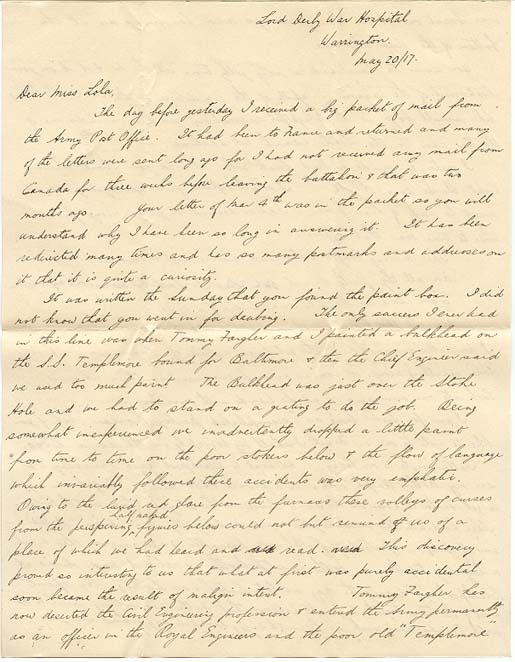 Lord Derby War Hospital
Warrington.
May 20/17.
Dear Miss Lola,
The day before yesterday I received a big packet of mail from
the Army Post Office. It had been to France and returned and many
of the letters were sent long ago for I had not received any mail from
Canada for three weeks before leaving the battalion & that was two
months ago. Your letter of Mar 4th was in the packet so you will
understand why I have been so long in answering it. It has been
redirected many times and has so many postmarks and addresses on
it that it is quite a curiosity.
It was written the Sunday that you found the paint box. I did
not know that you went in for daubing. The only success I ever had
in this line was when Tommy Fargher and I painted a bulkhead on
the S.S. Templemore bound for Baltimore & then the Chief Engineer said
we used too much paint The Bulkhead was just over the Stoke
Hole and we had to stand on a grating to do the job. Being
somewhat inexperienced we inadvertently dropped a little paint
from time to time on the poor stokers below & the flow of language
which invariably followed these accidents was very emphatic.
Owing to the lurid red glare from the furnaces these volleys of curses
from the perspiring half naked figures below could not but remind us of a
place of which we had heard and read. This discovery
proved so interesting to us that what at first was purely accidental
soon became the result of malign intent. Tommy Fargher has
now deserted the Civil Engineering profession & entered the Army permanently
as an officer in the Royal Engineers and the poor old "Templemore"